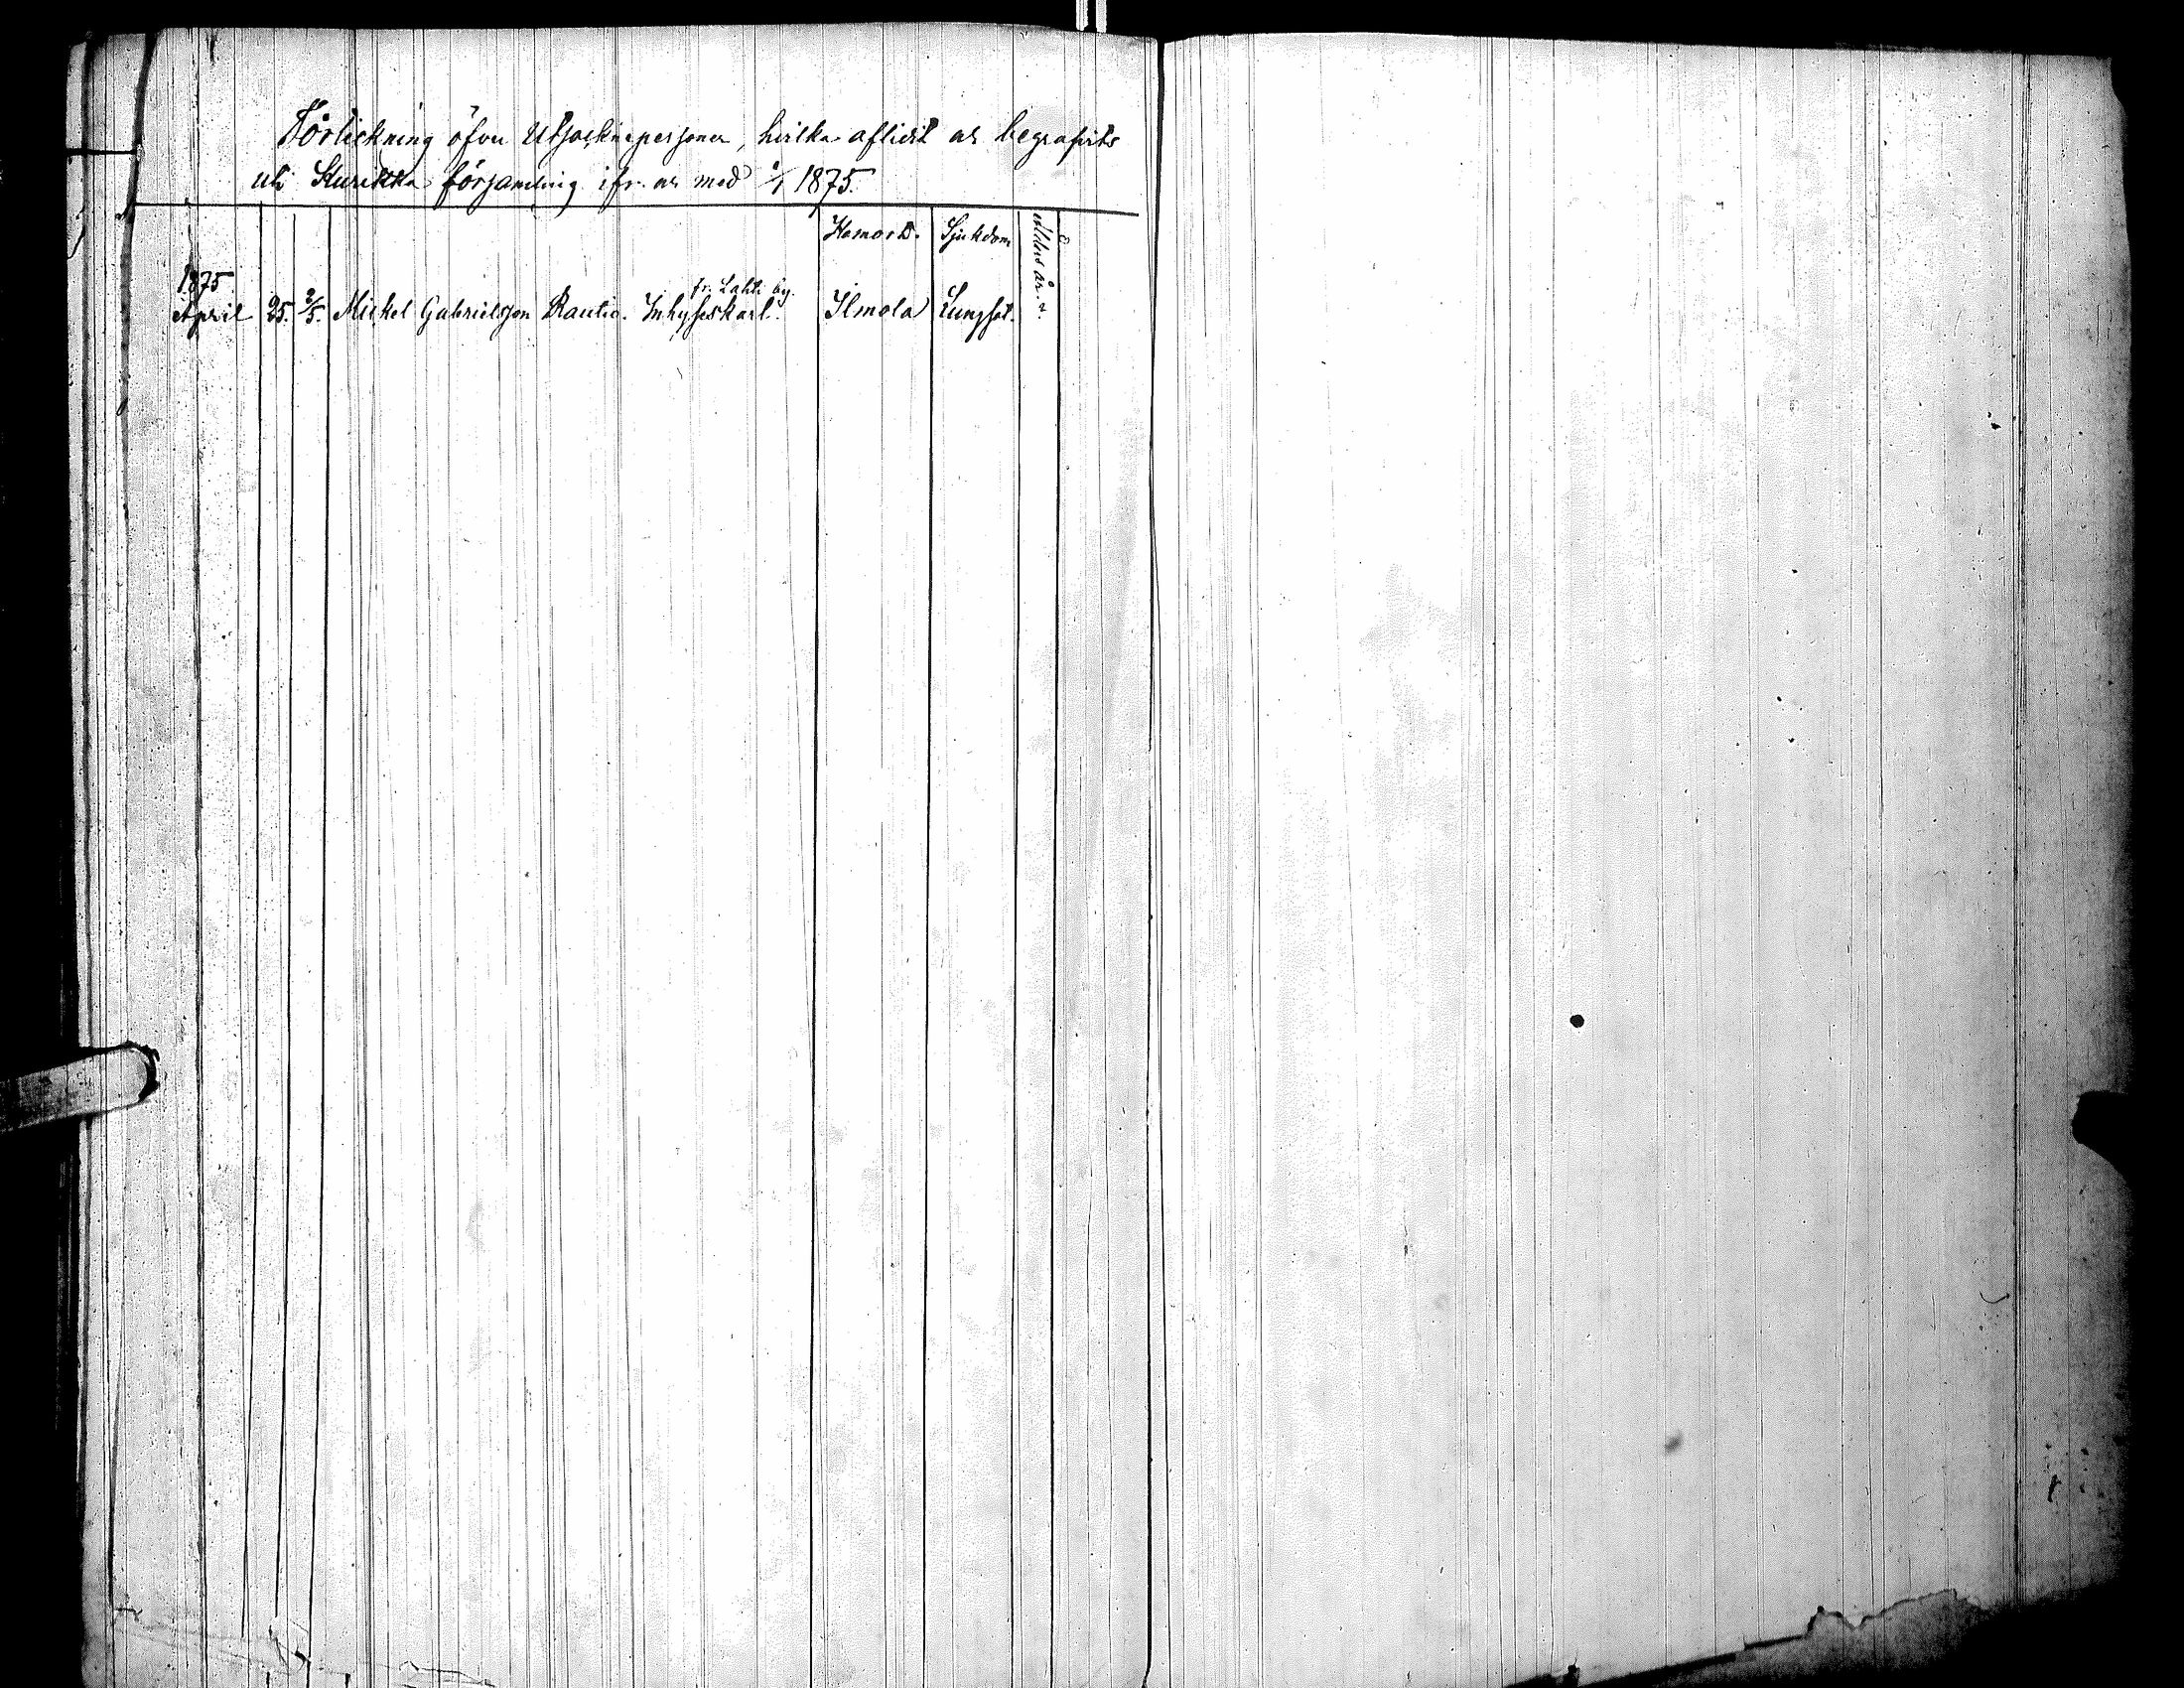 Förtekning öfver Utsocknepersoner, hvilka aflidit och begrafvits
uti Kurikka församling ifr. och med 1/1 1875.
Hemort. Sjukdom Ålders år.
1875.
fr. Lahti by.
April 25. 2/5. Mickel Gabrielsson Rautio. Inhyseskarl. Ilmola Lungsot.